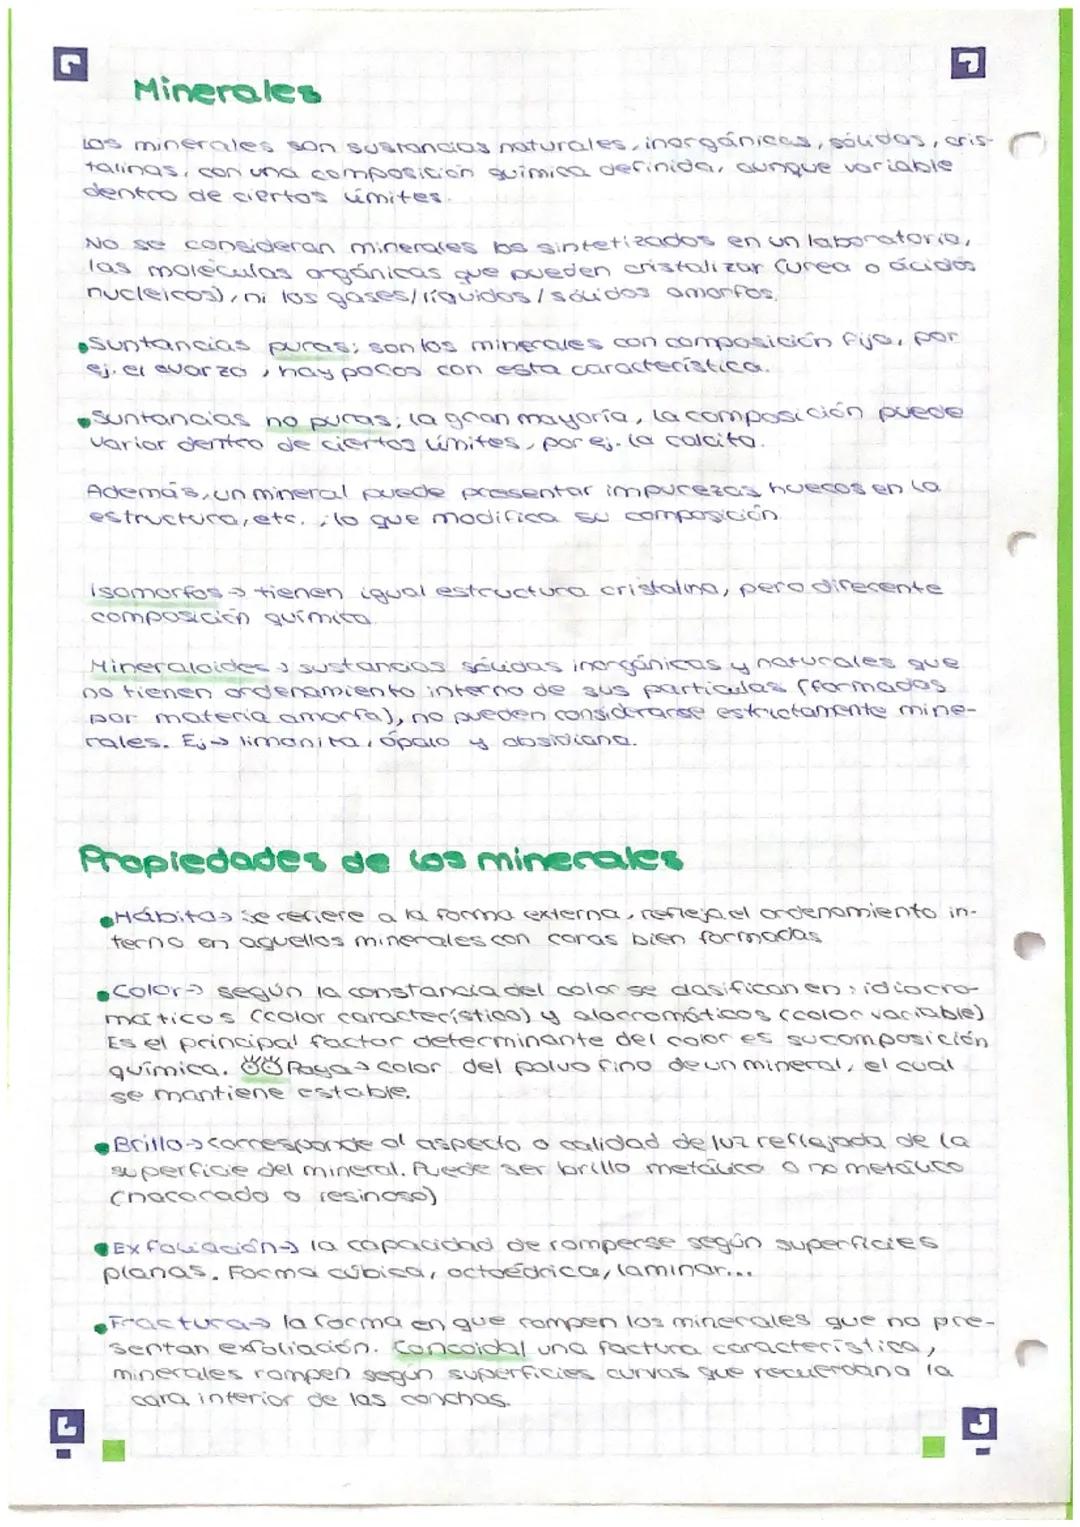 Minerales
Los minerales son sustancias naturales, inorgánicas, sólidas, cris-
talinas, con una composición química definida, aunque variable
dentro de ciertos límites.
No se consideran minerales los sintetizados en un laboratorio,
las moléculas orgánicas que pueden cristalizar (urea o ácidos
nucleicos), ni los gases/líquidos/sólidos amorfos.
• Suntancias puras; son los minerales con composición fija, por
ej. el cuarzo, hay pocos con esta característica.
• Suntancias no puras; la gran mayoría, la composición puede
variar dentro de ciertos límites, por ej. la calcita.
Además, un mineral puede presentar impurezas, huecos en la
estructura, etc., lo que modifica su composición.
Isomorfos → tienen igual estructura cristalina, pero diferente
composición química.
Mineraloides → sustancias sólidas inorgánicas y naturales que
no tienen ordenamiento interno de sus partículas (formados
por materia amorfa), no pueden considerarse estrictamente mine-
rales. Ej → limonita, ópalo y obsidiana.
Propiedades de los minerales
• Hábito → se refiere a la forma externa, refleja el ordenamiento in-
terno en aquellos minerales con caras bien formadas
• Color → según la constancia del color se clasifican en: idiocro-
máticos (color característico) y alocromáticos (color variable)
Es el principal factor determinante del color es su composición
química. Raya → color del polvo fino de un mineral, el cual
se mantiene estable.
• Brillo → corresponde al aspecto o calidad de luz reflejada de la
superficie del mineral. Puede ser brillo metálico o no metálico
(nacarado o resinoso)
• Exfoliación → la capacidad de romperse según superficies
planas. Forma cúbica, octoédrica, laminar...
• Fractura → la forma en que rompen los minerales que no pre-
sentan exfoliación. Concoidal una factura característica,
minerales rompen según superficies curvas que recuerdana la
cara interior de las conchas.